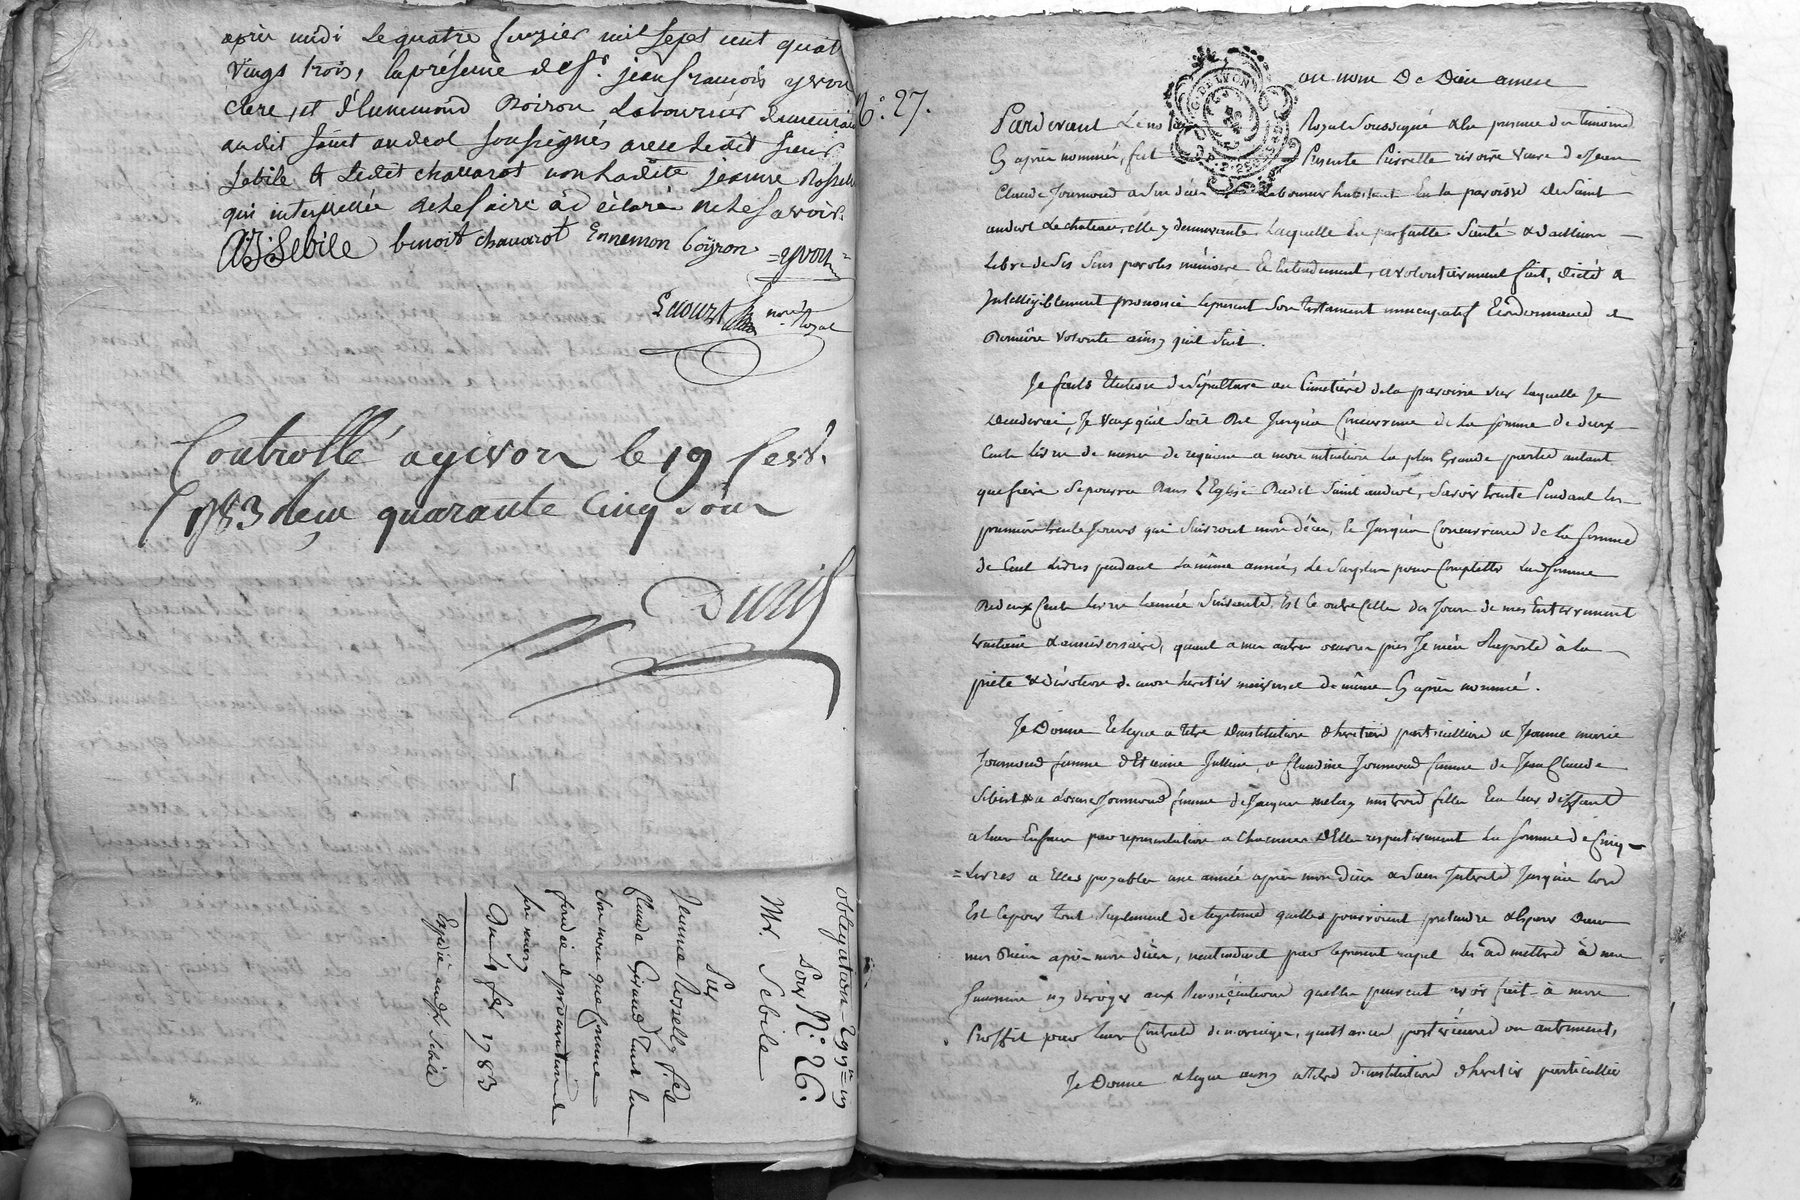 apres midi le quatre fevrier mil sept cent quat
vingt trois, la présence de Sr. jean francois yvon
clerc, et d'Ennemond Boiron Laboureur demeurant
audit saint andeol soussignés avec ledit sieur
Sebile & ledit chavarot non ladite jeanne Rosselly
qui interpellée de le faire a déclaré ne le savoir.
Sebile benoit chavarot Ennemon boyron yvon
not. Royal
Controllé a givors le 19 fevr.
1783 Recu quarante Cinq sous
obligation
Pour N.° 26.
Mr. Sebile
Sur
Jeanne Rosselly fe. de
Claude Giraud tant en
son nom que comme
fondée de procuration de
son mary
Du 4 fev. 1783
Expédié aud. Sr. Sebile
N.° 27.
au nom De Dieu amen
G. DE LYON
Pardevant Le notaire Royal Soussigné & la presence des temoins
Cy après nommés, fut Presente Pierrette rivoire veuve de Jean
Claude Journoud a son décès Laboureur habitant En la paroisse de Saint
andeol Le chateau, elle y demeurante Laquelle En parfaitte Santé & d'ailleurs
Libre de Ses Sens paroles mémoire & Entendement, a volontairement fait, dicté &
Intelligiblement prononcé le present Son testament nuncupatif & ordonnance de
Derniere volonté ainsy qu'il Suit.
Je fais Election de Sépulture au Cimetière de la paroisse Sur Laquelle Je
decederai, Je veux qu'il Soit Dit Jusqu'a Concurrence de La Somme de deux
Cent Livres de messes de requiem a mon intention La plus Grande partie autant
que faire Se pourra Dans L'Eglise Dudit Saint andeol, Savoir trente Pendant les
premiers trente Jours qui Suivront mon décès, & Jusqu'a Concurrence de La Somme
de Cent Livres pendant La même année, Le Surplus pour Completter Lad. Somme
De deux Cent Livres L'année Suivante. Et Ce outre Celles des Jours de mes Enterrement
trentaine & anniversaire, quant a mes autres oeuvres pies Je m'en Raporte à la
pieté & dévotion de mon heritier universel de même Cy après nommé.
Je Donne & Legue a titre D'institution d'heritiere particuliere a Jeanne marie
Journoud femme d'Etienne Jullien, a Claudine Journoud femme de Jean Claude
Sibert & a Louise Journoud femme de Jacques melay mes trois filles & a leur deffaut
a leurs Enfans par representation a Chacune d'Elles respectivement La Somme de Cinq
Livres a Elles payables une année après mon décès & Sans Interets Jusqu'a lors
Et Ce pour tout Suplement de legitime quelles pourroient pretendre & Esperer Dans
mes Biens après mon décès, n'entendant par le present rapel les admettre à ma
Succession ny deroger aux Renonciations quelles peuvent avoir fait à mon
Proffit pour leur Contrats de mariage, quittances posterieures ou autrement,
Je Donne & legue aussy a titre D'institution d'heritier particullier